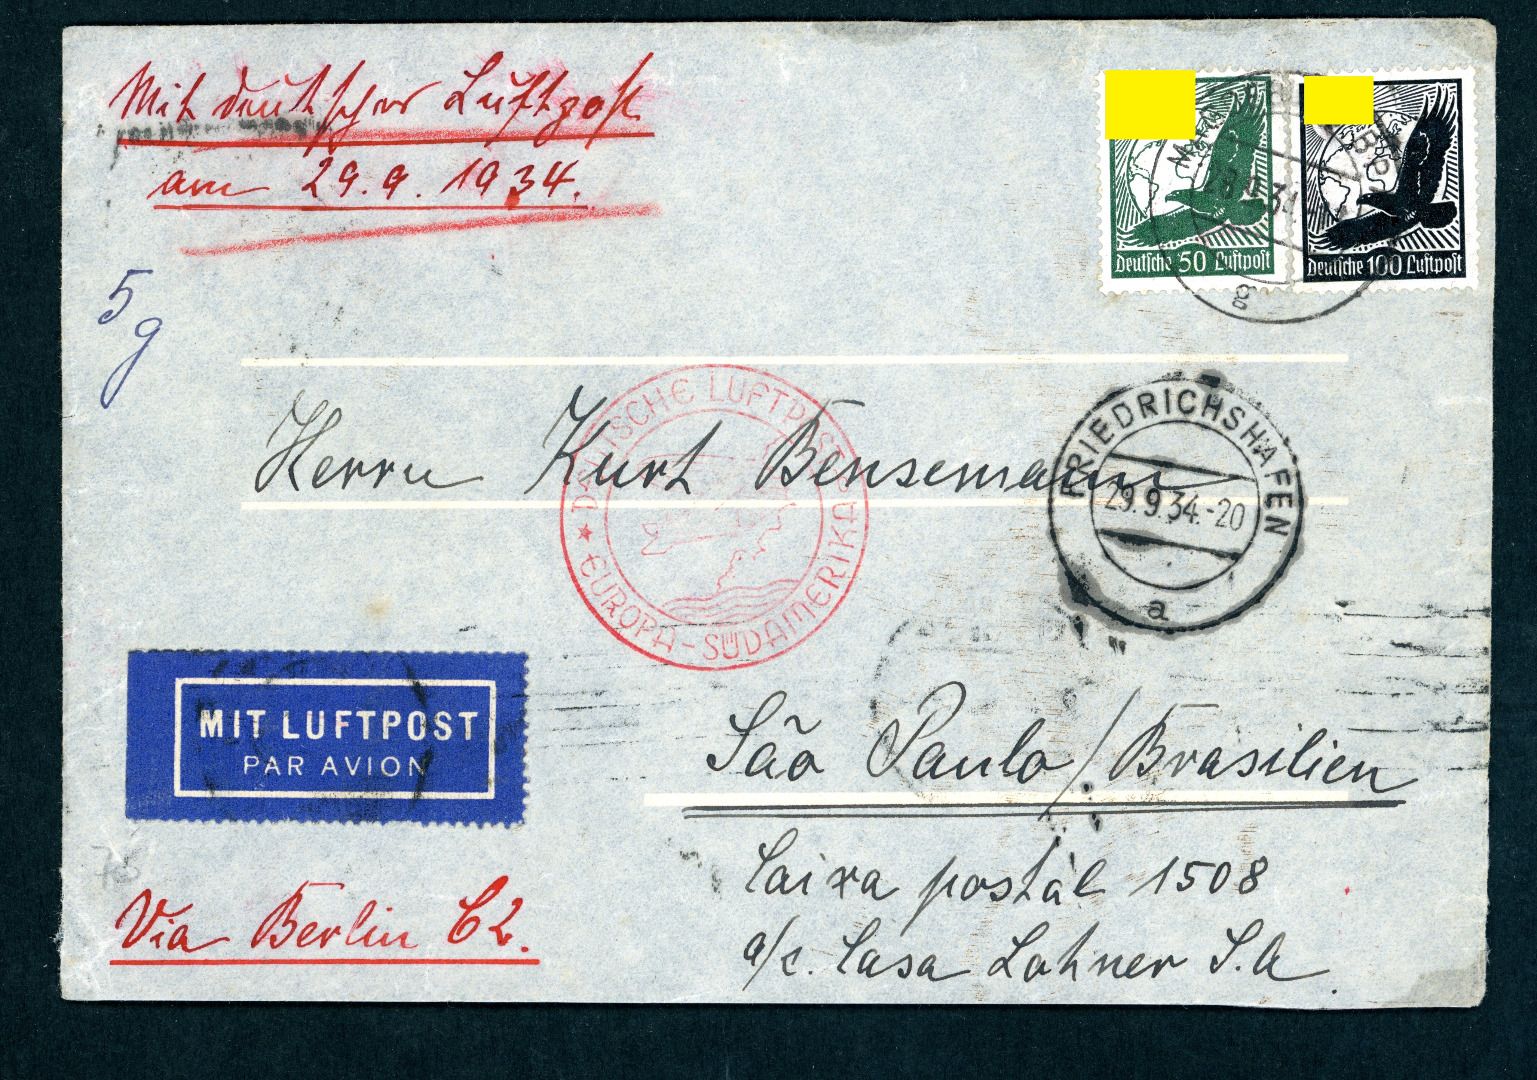 Mit deutscher Luftpost
am 29.9.1934.
Deutsche 50 Luftpost
Deutsche 100 Luftpost
34
g
5 g
DEUTSCHE LUFTPOST
EUROPA - SÜDAMERIKA
FRIEDRICHSHAFEN
29.9.34.-20
a
Herrn Kurt Bensemann
MIT LUFTPOST
PAR AVION
São Paulo / Brasilien
Caixa postál 1508
a/c. Casa Lohner S.A.
Via Berlin C2.